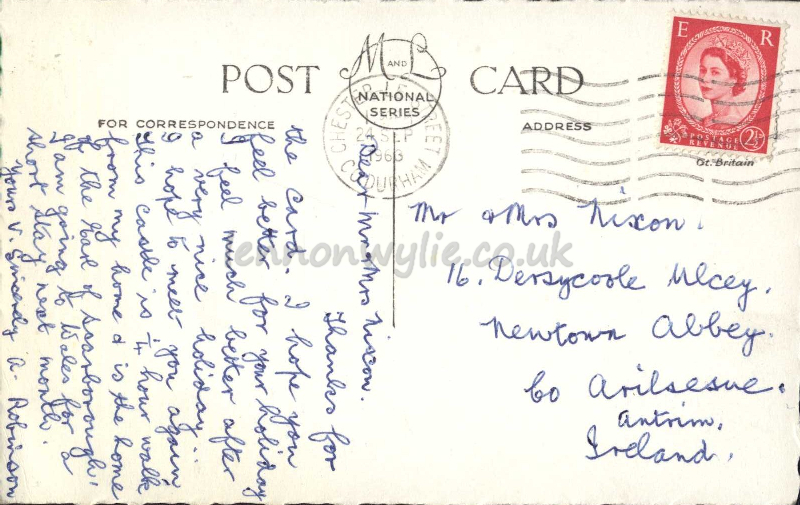 POST CARD
M AND L
NATIONAL
SERIES
FOR CORRESPONDENCE
ADDRESS
CHESTER LE STREET
24 SEP
1963
CO. DURHAM
E R
POSTAGE
REVENUE
2½D
Gt. Britain
Dear Mr & Mrs Nixon.
Thanks for
the card. I hope you
feel better for your holiday
I feel much better after
a very nice holiday..
I hope to meet you again
this castle is ¼ hour walk
from my home & is the home
of the Earl of Scarborough.
I am going to Wales for a
short stay next month.
Yours V. Sincerely A. Robinson
Mr & Mrs Nixon.
16. Derrycoole
Newtown Abbey.
Co
Antrim.
Ireland.
lennonwylie.co.uk